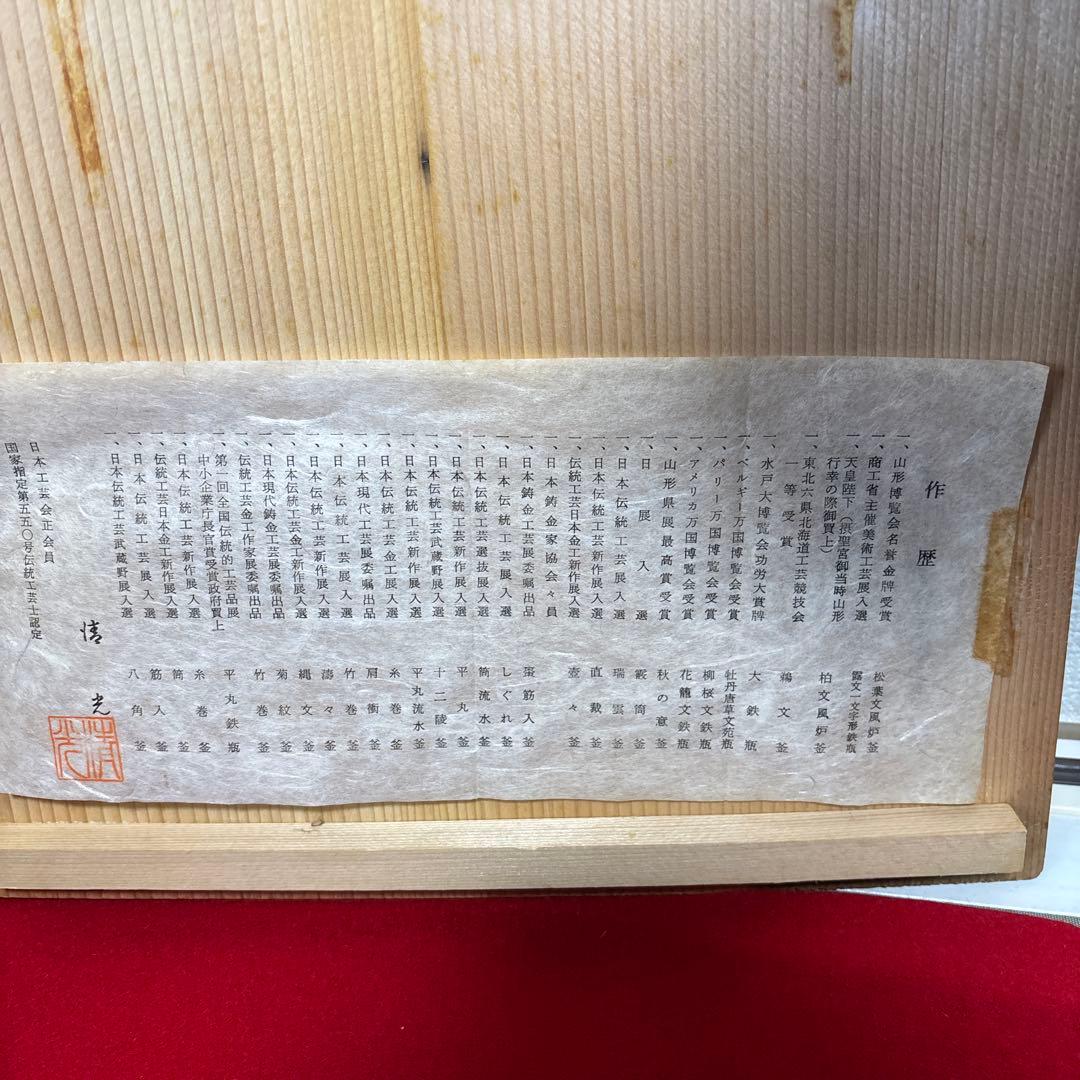 作歴
一、山形博覧会名誉金牌受賞 松葉文風炉釜
一、商工省主催美術工芸展入選 露文一文字形鉄瓶
一、天皇陛下(摂聖宮御当時山形
行幸の際御買上) 柏文風炉釜
一、東北六県北海道工芸競技会
一等受賞 鶏文釜
一、水戸大博覧会功労大賞牌 大鉄瓶
一、ベルギー万国博覧会受賞 牡丹唐草文苑瓶
一、パリー万国博覧会受賞 柳桜文鉄瓶
一、アメリカ万国博覧会受賞 花籠文鉄瓶
一、山形県展最高賞受賞 秋の意釜
一、日展入選 霰筒釜
一、日本伝統工芸展入選 瑞雲釜
一、日本伝統工芸新作展入選 直戴釜
一、伝統工芸日本金工新作展入選 壺々釜
一、日本鋳金家協会々員
一、日本鋳金工芸展委嘱出品 棗筋入釜
一、日本伝統工芸展入選 しぐれ釜
一、日本伝統工芸選抜展入選 筒流水釜
一、日本伝統工芸新作展入選 平丸釜
一、日本伝統工芸武蔵野展入選 十二陵釜
一、日本伝統工芸新作展入選 平丸流水釜
一、日本伝統工芸金工展入選 糸巻釜
一、日本現代工芸展委嘱出品 肩衝釜
一、日本伝統工芸展入選 竹巻釜
一、日本伝統工芸新作展入選 濤々釜
一、日本伝統工芸金工新作展入選 縄文釜
一、日本現代鋳金工芸展委嘱出品 菊紋釜
一、伝統工芸金工作家展委嘱出品 竹巻釜
一、第一回全国伝統的工芸品展
中小企業庁長官賞受賞政府買上 平丸鉄瓶
一、日本伝統工芸新作展入選 糸巻釜
一、伝統工芸日本金工新作展入選 筒釜
一、日本伝統工芸展入選 筋入釜
一、日本伝統工芸武蔵野展入選 八角釜
清光
日本工芸会正会員
国家指定第五五〇号伝統工芸士認定